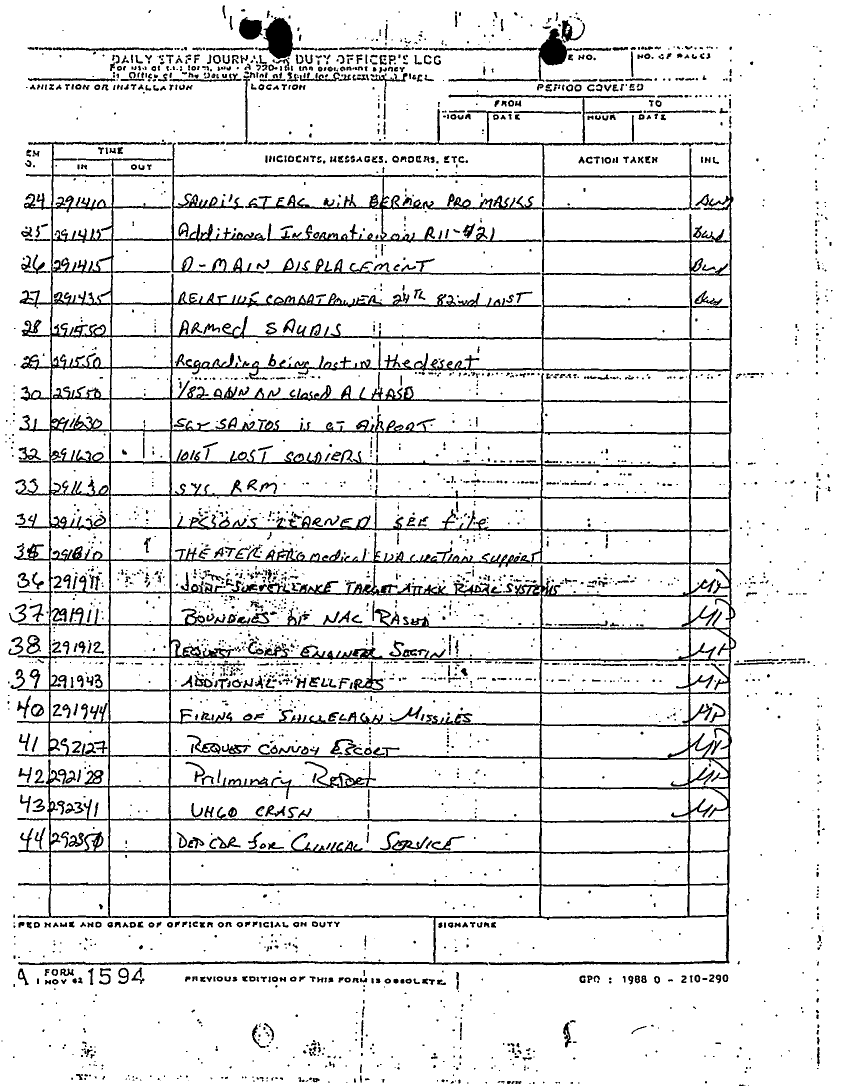 DAILY STAFF JOURNAL OR DUTY OFFICER'S LOG
PERIOD COVERED
ANIZATION OR INSTALLATION LOCATION FROM TO
HOUR DATE HOUR DATE
E NO. NO. OF PAGES
TIME INCIDENTS, MESSAGES, ORDERS, ETC. ACTION TAKEN INL
IN OUT
24 291410 SAUDI'S AT EAC with PRO MASKS
25 291415 Additional Information on R11-#21
26 291415 D-MAIN DISPLACEMENT
27 291435 RELATIVE COMBAT POWER 24TH 82nd 101ST
28 291550 ARMed SAUDIS
29 291550 Regarding being lost in the desert
30 291550 1/82 closed AL HASD
31 291630 SGT SANTOS is at AIRPORT
32 291630 101ST LOST SOLDIERS
33 291630 SYS. RRM
34 291630 LESSONS LEARNED SEE file
35 291810 THEATER AEROmedical EVACUATION SUPPORT
36 291911 JOINT SURVEILLANCE TARGET ATTACK RADAR SYSTEMS MP
37 291911 BOUNDRIES OF NAC MP
38 291912 REQUEST CORPS ENGINEER SECTIN MP
39 291943 ADDITIONAL HELLFIRES MP
40 291944 FIRING OF SHILLELAGH MISSILES MP
41 292127 REQUEST CONVOY ESCORT MP
42 292128 Preliminary REPORT MP
43 292341 UH60 CRASH MP
44 292350 DEP CDR for CLINICAL SERVICE
PED NAME AND GRADE OF OFFICER OR OFFICIAL ON DUTY SIGNATURE
A FORM 1 NOV 62 1594 PREVIOUS EDITION OF THIS FORM IS OBSOLETE. GPO : 1988 O - 210-290